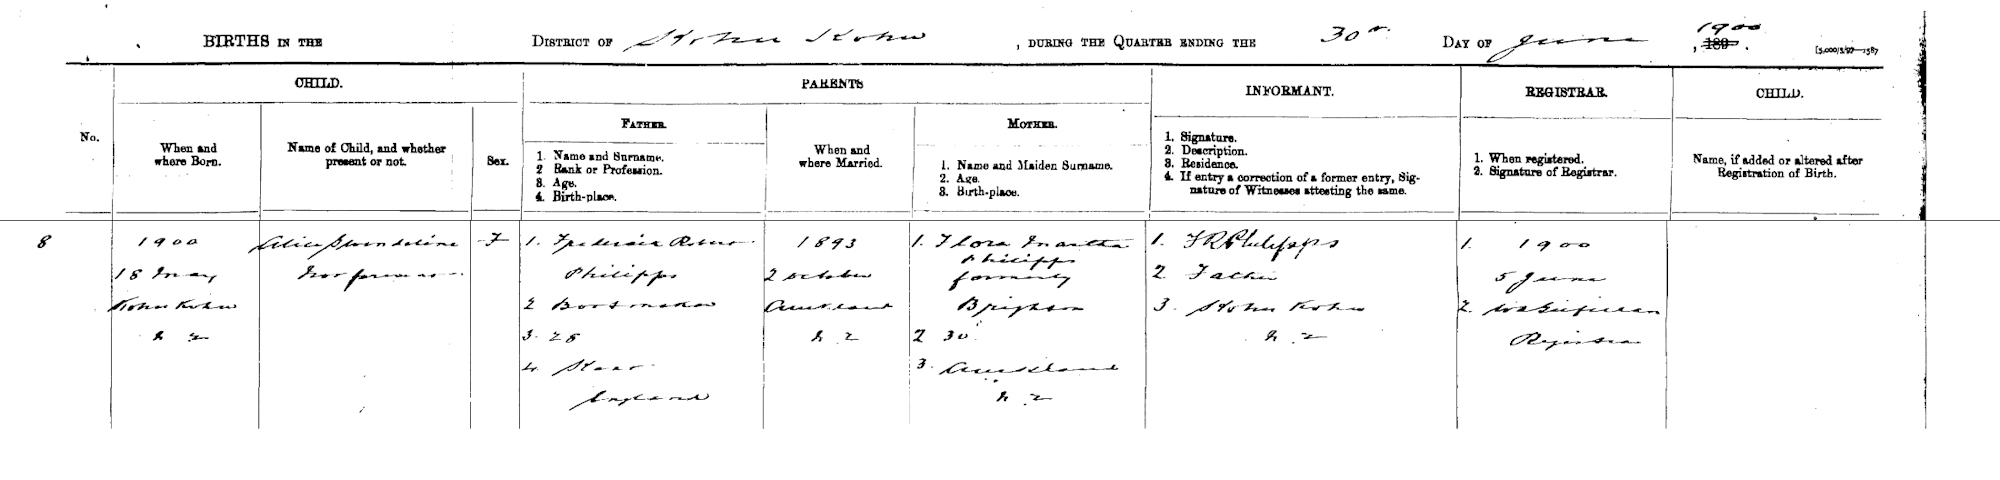 BIRTHS IN THE DISTRICT OF Kohu Kohu, DURING THE QUARTER ENDING THE 30th DAY OF June 1900, 189 . [5,000/3/97—1587
CHILD. PARENTS INFORMANT. REGISTRAR. CHILD.
No.
When and where Born.
Name of Child, and whether present or not.
Sex.
FATHER.
1. Name and Surname.
2 Rank or Profession.
3. Age.
4. Birth-place.
When and where Married.
MOTHER.
1. Name and Maiden Surname.
2. Age.
3. Birth-place.
1. Signature.
2. Description.
3. Residence.
4. If entry a correction of a former entry, Sig-
nature of Witnesses attesting the same.
1. When registered.
2. Signature of Registrar.
Name, if added or altered after
Registration of Birth.
8
1900
18 May
Kohu Kohu
N Z
Alice Gwendoline
Not present
F
1. Frederick Robert
Philipps
2 Bootmaker
3. 28
4.
England
1893
2 October
Auckland
N Z
1. Flora Martha
Philipps
formerly
Brighton
2 30
3. Auckland
N Z
1. F R Philipps
2. Father
3. Kohu Kohu
N Z
1. 1900
5 June
2.
Registrar